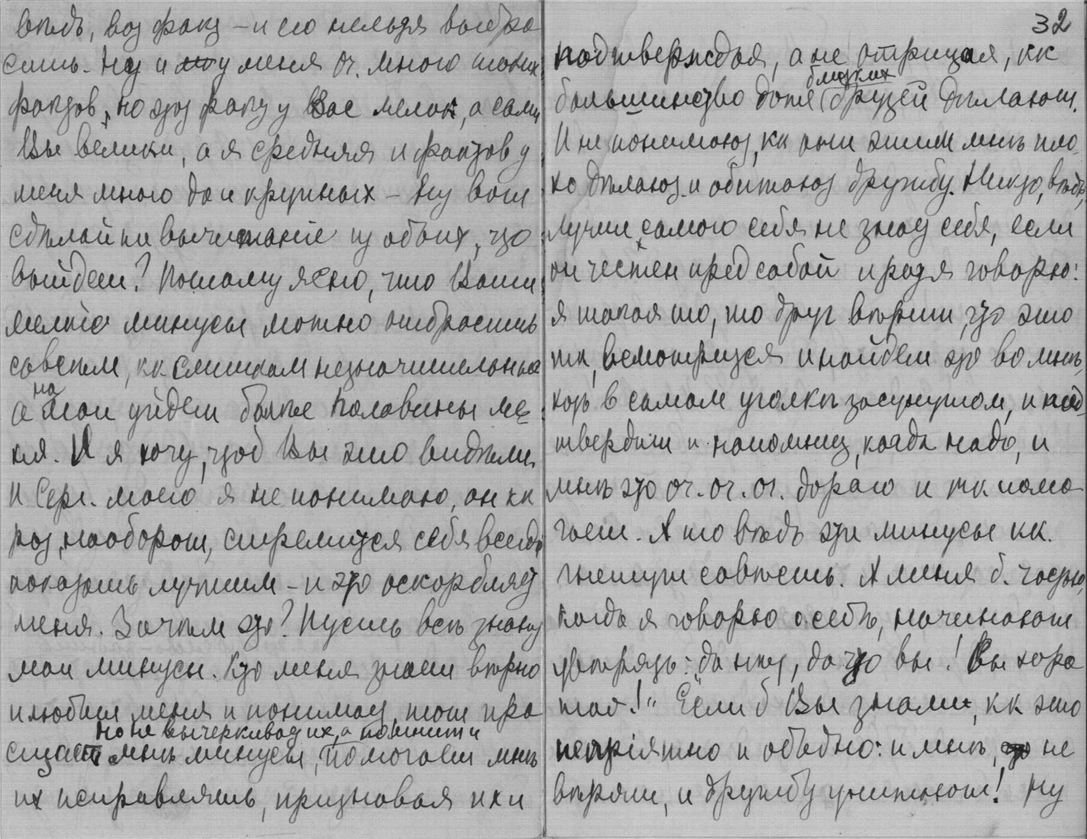 вѣдь, воз факт – и его нельзя выбро
сить. Ну и у меня оч. много таких
фактов, но этот факт у Вас мелок, а сами
Вы велики, а я средняя и фактов у
меня много да и крупных – Ну вот
сдѣлайти вычитаніе из обоих, что
выйдет? Потому ясно, что Ваши
мелкіе минусы можно отбросить
совсѣм, кк слишком незначительные
а на мои уйдет болѣе половины ме-
ня. И я хочу, чтоб Вы это видѣли
И Серг. моего я не понимаю, он кк
раз, наоборот, стремится себя всегда
показать лучшим – и это оскорбляет
меня. Зачѣм это? Пусть всѣ знают
мои минусы. Кто меня знает вѣрно
и любит меня и понимает, тот про
но не вычеркивает их, а помнит и
щает мнѣ минусы, помогает мнѣ
их исправлять, признавая их и
32
подтверждая, а не отрицая, кк
близких
большинство даже друзей дѣлают.
И не понимают, кк они этим мнѣ пло-
хо дѣлают и обижают дружбу. Никто, вѣдь,
лучше самого себя не знает себя, если
он честен пред собой и раз я говорю:
я такая то, то друг вѣрит, что это
тк, всмотрится и найдет это во мнѣ,
хоть в самом уголкѣ засунутом, и под-
твердит и напомнит, когда надо, и
мнѣ это оч. оч. оч. дорого и тк помо-
гает. А то вѣдь эти минусы кк.
гнетут совѣсть. А меня б. частью,
когда я говорю о себѣ, начинают
увѣрять: „да нѣт, да что вы! Вы хоро
шая!" Если б Вы знали, кк это
непріятно и обидно: и мнѣ, не
вѣрят, и дружбу уничтож! Ну